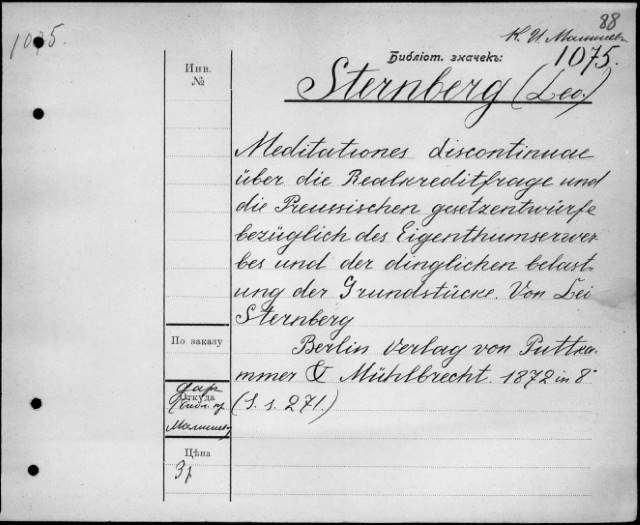 88
К. И. Малышев
1075.
Библіот. значекъ:
1075.
Sternberg (Leo.)
Инв.
№
Meditationes discontinuae
über die Realkreditfrage und
die Preussischen gesetzentwürfe
bezüglich des Eigenthumserwer-
bes und der dinglichen belast-
ung der Grundstücke. Von Leo
Sternberg
По заказу
Berlin Verlag von Puttka-
mmer & Mühlbrecht. 1872 in 8°
(S. s. 271.)
дар
Откуда
Малышев
Цѣна
3р